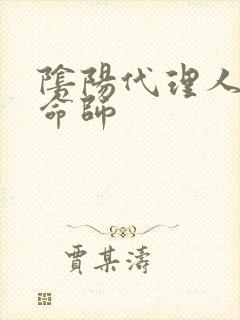 陰陽代理人
命師
賈某濤